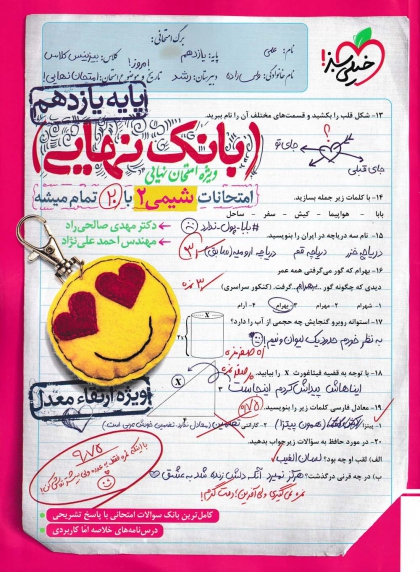 برگ امتحانی:
نام: علی
پایه: یازدهم
کلاس: بیزینس کلاس
امروز!
نام خانوادگی:
دبیرستان: رشد
تاریخ و موضوع امتحان: امتحان نهایی!
خیلی سبز!
پایه یازدهم
۱۳- شکل قلب را بکشید و قسمت‌های مختلف آن را نام ببرید.
؟
جای تو
جای قبلی
بانک نهایی
ویژه امتحان نهایی
امتحانات شیمی ۲ با ۲۰ تمام میشه
۱۴- با کلمات زیر جمله بسازید.
بابا - هواپیما - کیش - سفر - ساحل
#بابا-پول-ندارد
دکتر مهدی صالحی‌راد
مهندس احمد علی‌نژاد
۱۵- نام سه دریاچه در ایران را بنویسید.
دریاچه خزر دریاچه قم دریاچه ارومیه (سابق)
۱۶- بهرام که گور می‌گرفتی همه عمر
دیدی که چگونه گور بهرام گرفت. (کنکور سراسری)
۳ نمره
۱- شهرام ۲- مهرام ۳- بهرام ۴- آرام
۱۷- استوانه روبرو گنجایش چه حجمی از آب را دارد؟
به نظر خودم حدود یک لیوان و نیم!
۱۸- با توجه به قضیه فیثاغورث X را بیابید.
X
ایناهاش پیداش کردم اینجاست
۳
۱۹- معادل فارسی کلمات زیر را بنویسید.
۰/۷۵
۱- پیتزا: (همون پیتزا) ۲- گارانتی: تضمین
۲۰- در مورد حافظ به سؤالات زیر جواب بدهید.
الف) لقب او چه بود؟ لسان الغیب
ب) در چه قرنی درگذشت؟ هرگز نمیرد آنکه دلش زنده شد به عشق
ویژه ارتقاء معدل
۹/۷۵
کامل‌ترین بانک سوالات امتحانی با پاسخ تشریحی
درس‌نامه‌های خلاصه اما کاربردی